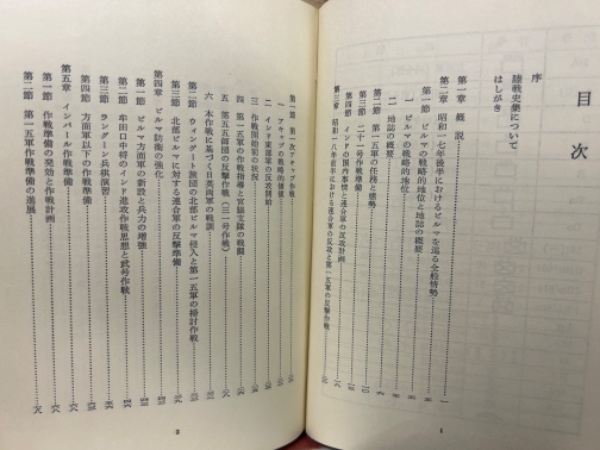 目次
序
陸戦史集について
はしがき
第一章 概説
第二章 昭和一七年後半におけるビルマを巡る全般情勢
第一節 ビルマの戦略的地位と地誌の概要
一 ビルマの戦略的地位
二 地誌の概要
第二節 第一五軍の任務と態勢
第三節 二十一号作戦準備
第四節 インドの国内事情と連合軍の反攻計画
第三章 昭和一八年前半における連合軍の反攻と第一五軍の反撃作戦
1
第一節 第一次アキャブ作戦
一 アキャブの戦略的価値
二 インド東部軍の反攻開始
三 作戦開始前の状況
四 第一五軍の作戦指導と宮脇支隊の戦闘
五 第五五師団の反撃作戦(三一号作戦)
六 本作戦に基づく日英両軍の戦訓
第二節 ウィンゲート旅団の北部ビルマ侵入と第一五軍の掃討作戦
第三節 北部ビルマに対する連合軍の反撃準備
第四章 ビルマ防衛の強化
第一節 ビルマ方面軍の新設と兵力の増強
第二節 牟田口中将のインド進攻作戦思想と武号作戦
第三節 ラングーン兵棋演習
第四節 方面軍以下の作戦準備
第五章 インパール作戦準備
第一節 作戦準備の発効と作戦計画
第二節 第一五軍作戦準備の進展